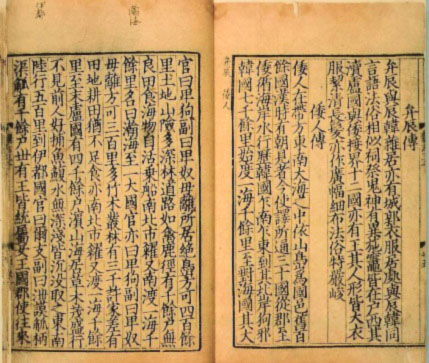 弁辰 倭人
弁辰傳
弁辰與辰韓雜居亦有城郭衣服居處與辰韓同
言語法俗相似祠祭鬼神有異施竈皆在戶西其
瀆盧國與倭接界十二國亦有王其人形皆大衣
服絜清長髮亦作廣幅細布法俗特嚴峻
倭人傳
倭人在帶方東南大海之中依山島爲國邑舊百
餘國漢時有朝見者今使譯所通三十國從郡至
倭循海岸水行歷韓國乍南乍東到其北岸狗邪
韓國七千餘里始度一海千餘里至對海國其大
瀚海
官曰卑狗副曰卑奴母離所居絶島方可四百餘
里土地山險多深林道路如禽鹿徑有千餘戶無
良田食海物自活乗船南北市糴又南渡一海千
餘里名曰瀚海至一大國官亦曰卑狗副曰卑奴
母離方可三百里多竹木叢林有三千許家差有
田地耕田猶不足食亦南北市糴又渡一海千餘
里至末盧國有四千餘戶濱山海居草木茂盛行
不見前人好捕魚鰒水無深淺皆沈沒取之東南
陸行五百里到伊都國官曰爾支副曰泄謨觚柄
渠觚有千餘戶世有王皆統屬女王國郡使往來